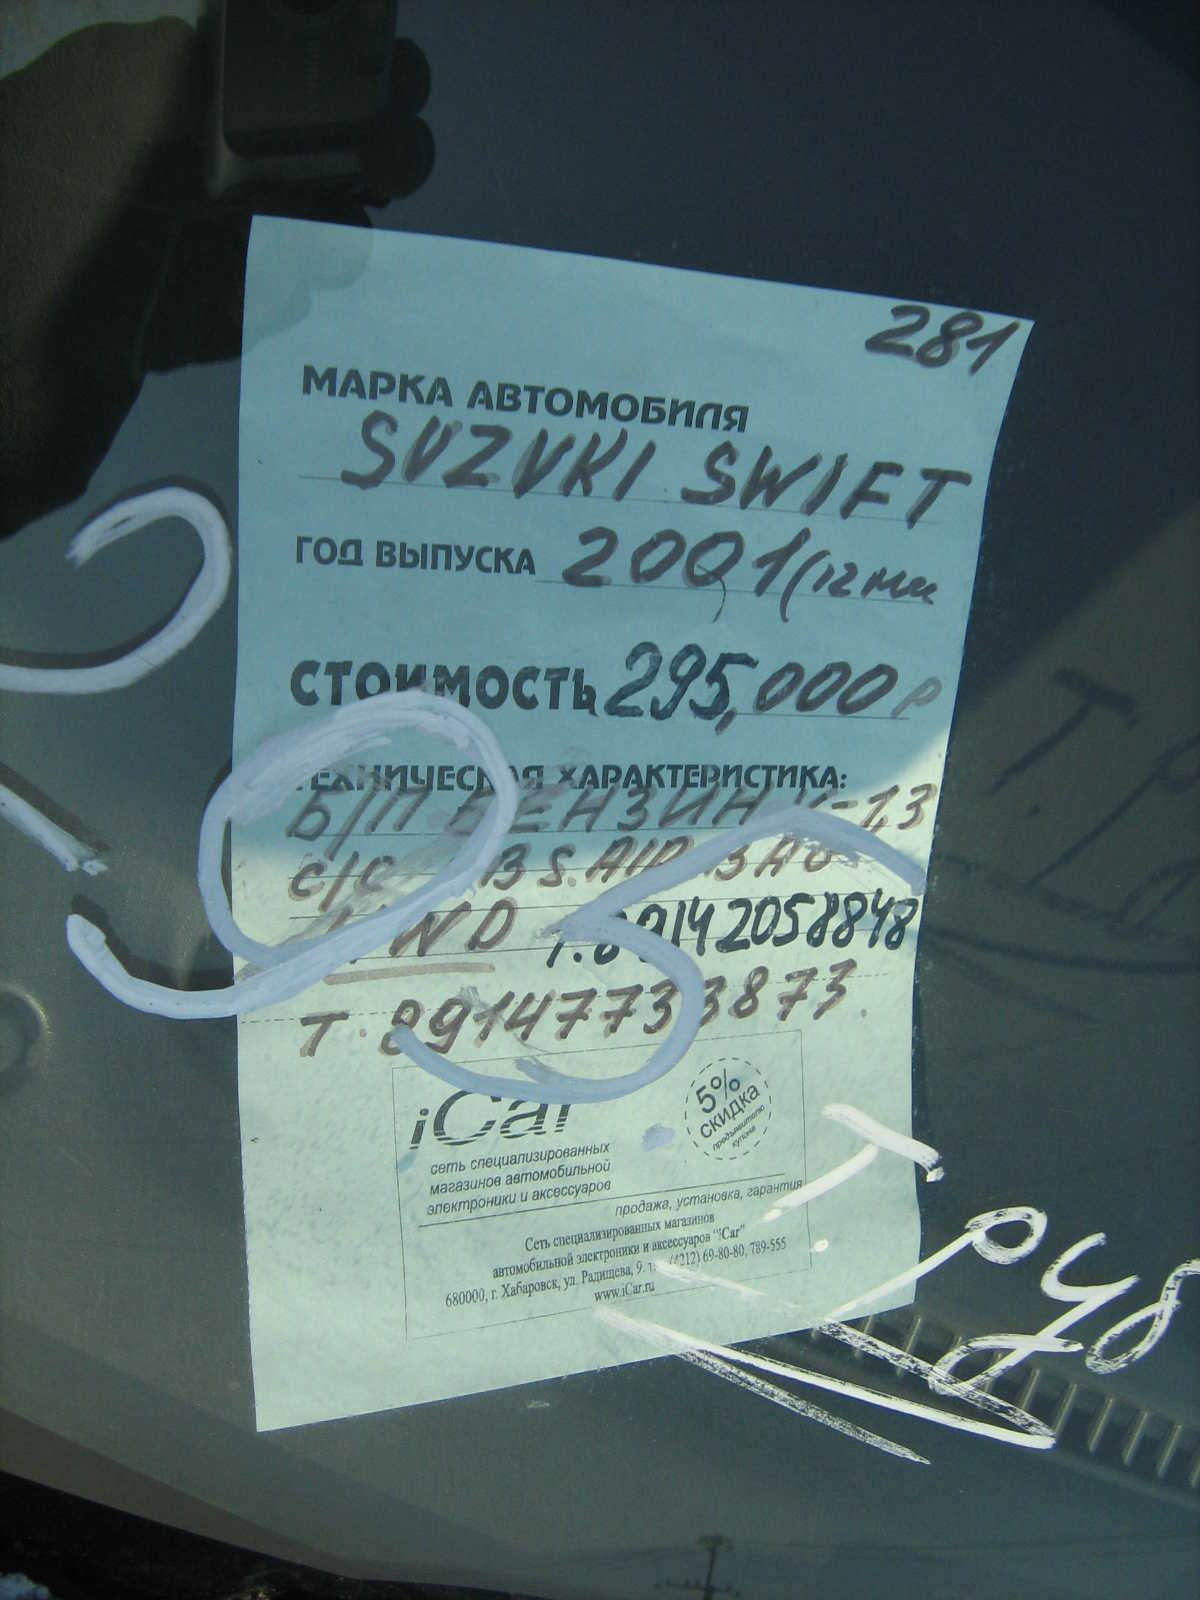 281
МАРКА АВТОМОБИЛЯ
SUZUKI SWIFT
ГОД ВЫПУСКА 2001 (12
СТОИМОСТЬ 295,000 р
ТЕХНИЧЕСКАЯ ХАРАКТЕРИСТИКА:
Б/П БЕНЗИН V-1,3
S. AIR
Т. 89142058848
Т. 89147733873.
295
т. руб
iCar
5% скидка
предъявителю купона
сеть специализированных
магазинов автомобильной
электроники и аксессуаров
продажа, установка, гарантия
Сеть специализированных магазинов
автомобильной электроники и аксессуаров "iCar"
680000, г. Хабаровск, ул. Радищева, 9. (4212) 69-80-80, 789-555
www.iCar.ru